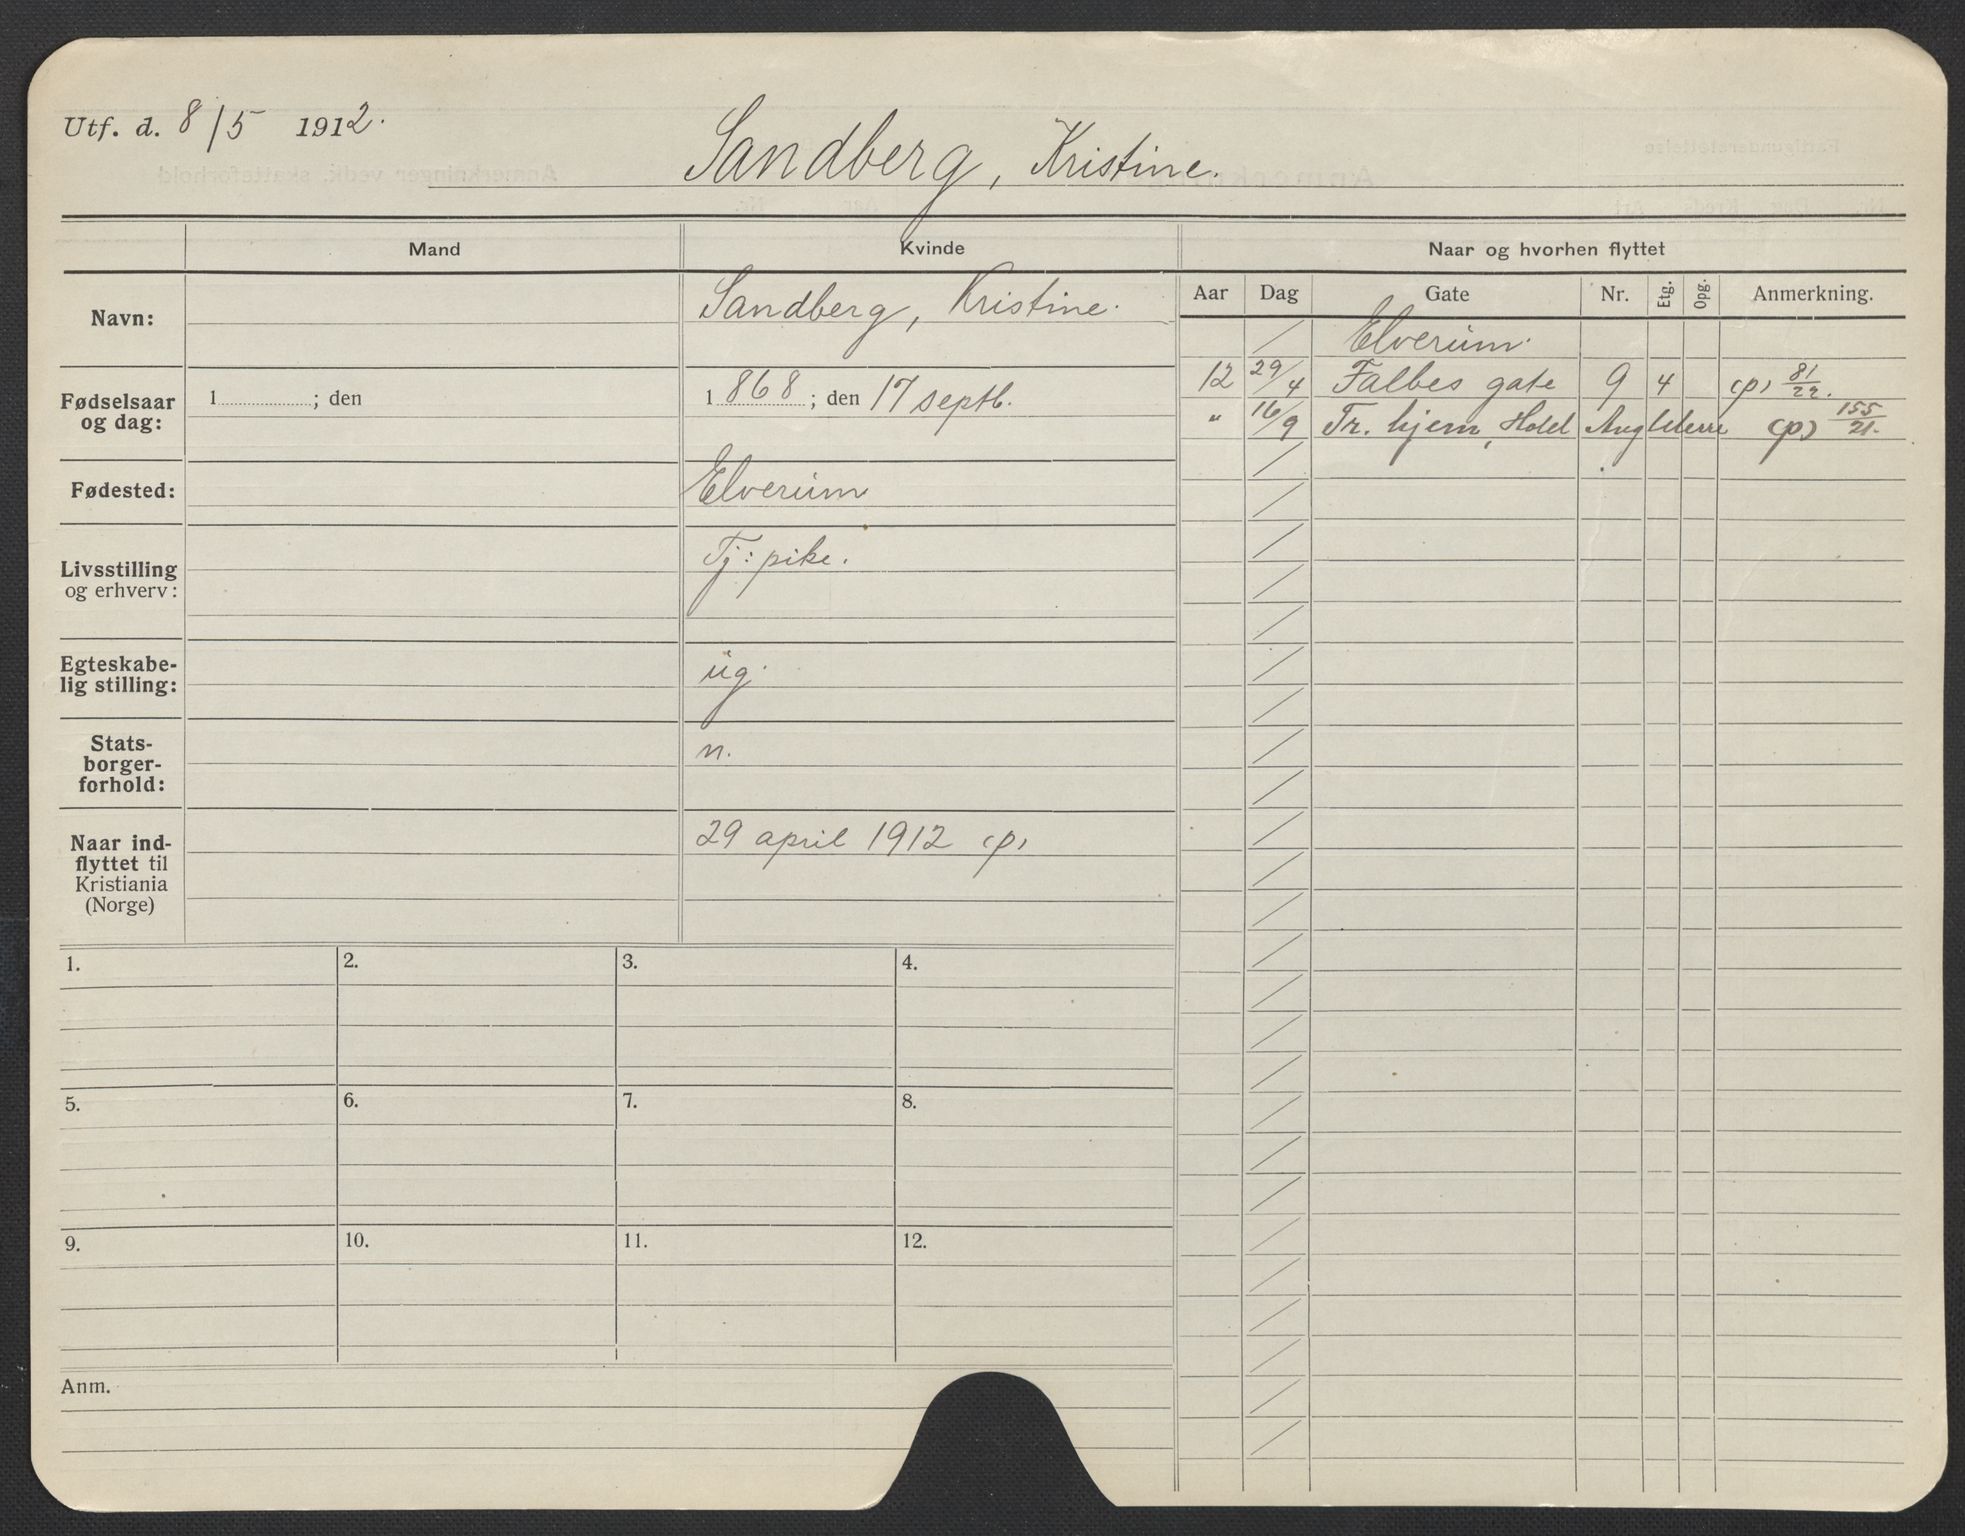 Utf. d. 8/5 1912.
Sandberg, Kristine.
Mand
Kvinde
Naar og hvorhen flyttet
Navn:
Sandberg, Kristine.
Fødselsaar og dag:
1 ; den
1 868 ; den 17 septb.
Fødested:
Elverum
Livsstilling og erhverv:
Tj: pike.
Egteskabe-
lig stilling:
ug.
Stats-
borger-
forhold:
n.
Naar ind-
flyttet til
Kristiania
(Norge)
29 april 1912 (p)
Aar Dag Gate Nr. Etg. Opg. Anmerkning.
/ Elverum.
12 29/4 Falbes gate 9 4 (p) 81/22.
" 16/9 Tr. hjem, Hotel Angleterre (p) 155/21.
1. 2. 3. 4.
5. 6. 7. 8.
9. 10. 11. 12.
Anm.